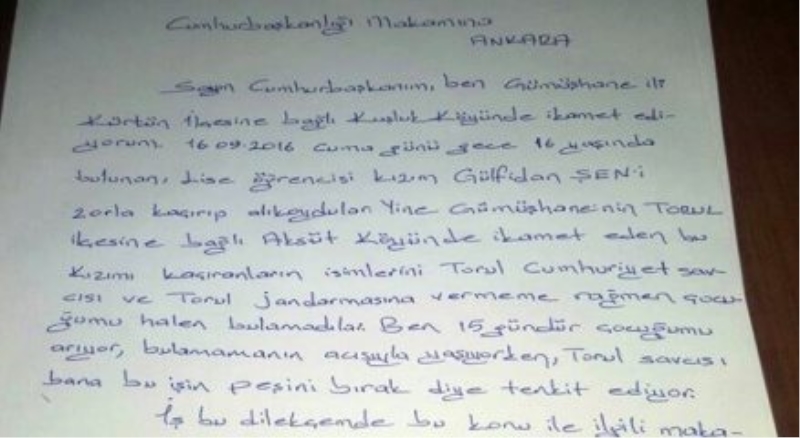 Cumhurbaşkanlığı Makamına
ANKARA
Sayın Cumhurbaşkanım, ben Gümüşhane ili
Kürtün ilçesine bağlı Kuşluk Köyünde ikamet edi-
yorum. 16.09.2016 cuma günü gece 16 yaşında
bulunan, Lise öğrencisi kızım Gülfidan ŞEN'i
zorla kaçırıp alıkoydular. Yine Gümüşhane'nin TORUL
ilçesine bağlı Aksüt Köyünde ikamet eden bu
kızımı kaçıranların isimlerini Torul Cumhuriyet sav-
cısı ve Torul jandarmasına vermeme rağmen çocu-
ğumu halen bulamadılar. Ben 15 gündür çocuğumu
arıyor, bulamamanın acısıyla yaşıyorken, Torul savcısı
bana bu işin peşini bırak diye tenkit ediyor.
İş bu dilekçemde bu konu ile ilgili maka-